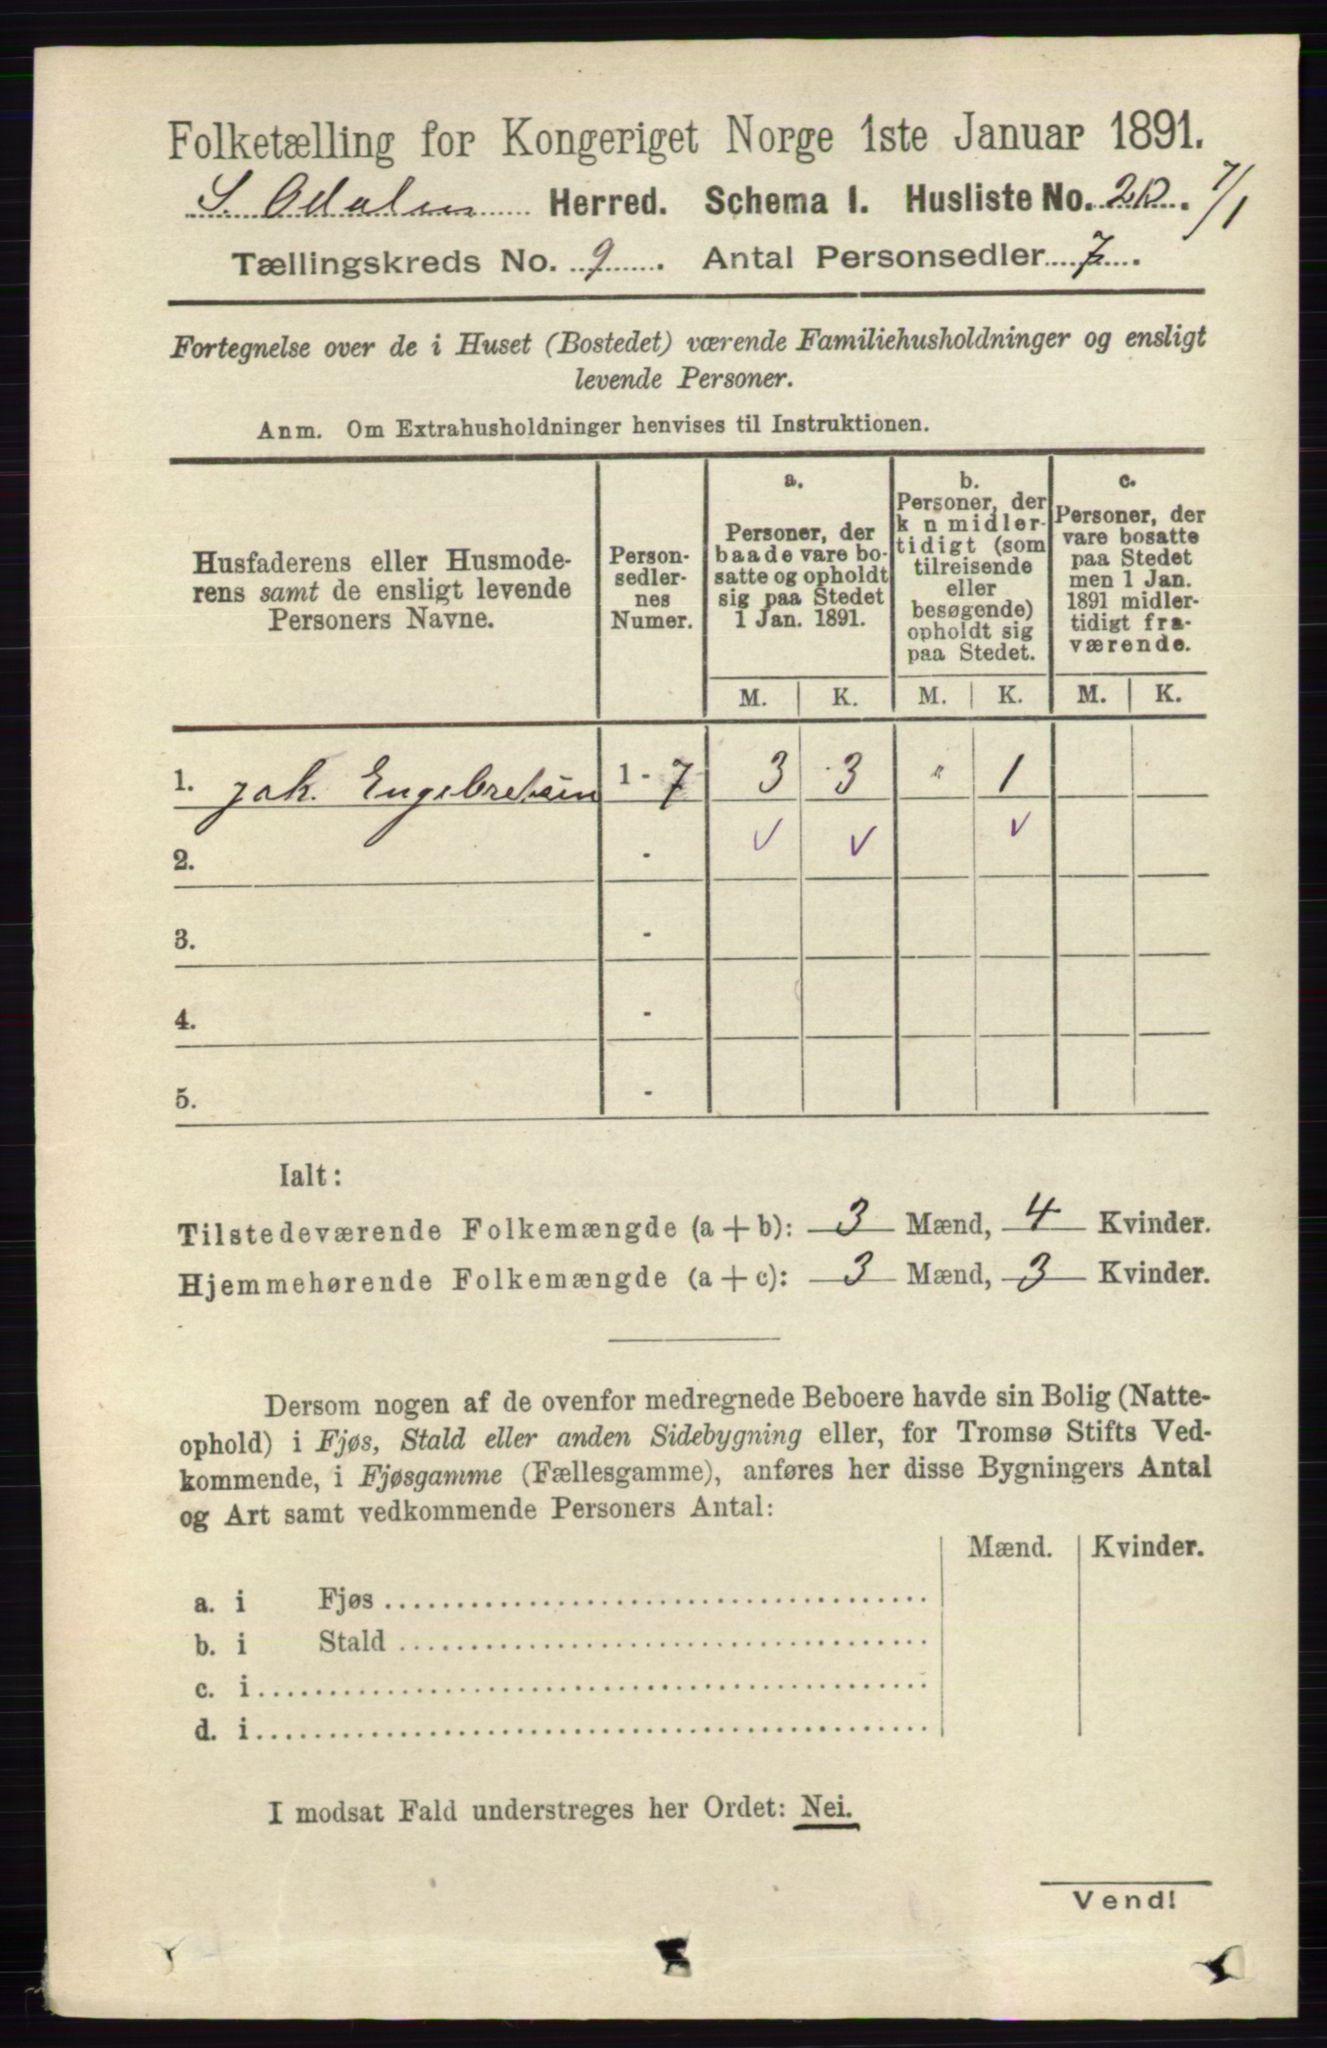 Folketælling for Kongeriget Norge 1ste Januar 1891.
S. Odalen Herred. Schema 1. Husliste No. 7/1
Tællingskreds No. 9. Antal Personsedler 7.
Fortegnelse over de i Huset (Bostedet) værende Familiehusholdninger og ensligt
levende Personer.
Anm. Om Extrahusholdninger henvises til Instruktionen.
Husfaderens eller Husmode-
rens samt de ensligt levende
Personers Navne.
Person-
sedler-
nes
Numer.
a.
Personer, der
baade vare bo-
satte og opholdt
sig paa Stedet
1 Jan. 1891.
b.
Personer, der
k n midler-
tidigt (som
tilreisende
eller
besøgende)
opholdt sig
paa Stedet.
c.
Personer, der
vare bosatte
paa Stedet
men 1 Jan.
1891 midler-
tidigt fra-
værende.
M. K. M. K. M. K.
1. Joh. Engebretsen 1 - 7 3 3 " 1
2. - ✓ ✓ ✓
3. -
4. -
5. -
Ialt:
Tilstedeværende Folkemængde (a + b): 3 Mænd, 4 Kvinder.
Hjemmehørende Folkemængde (a + c): 3 Mænd, 3 Kvinder.
Dersom nogen af de ovenfor medregnede Beboere havde sin Bolig (Natte-
ophold) i Fjøs, Stald eller anden Sidebygning eller, for Tromsø Stifts Ved-
kommende, i Fjøsgamme (Fællesgamme), anføres her disse Bygningers Antal
og Art samt vedkommende Personers Antal:
Mænd. Kvinder.
a. i Fjøs
b. i Stald
c. i
d. i
I modsat Fald understreges her Ordet: Nei.
Vend!